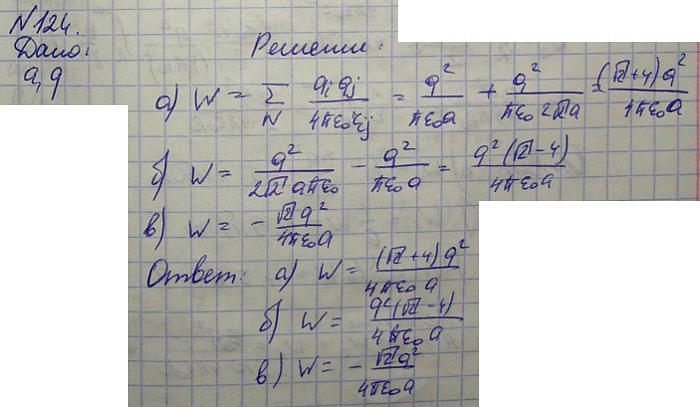 №124.
Дано:
a, q
Решение:
а) W = Σ_N q_i q_j / 4πε₀r_ij = q² / πε₀a + q² / πε₀2√2a = (√2+4)q² / 4πε₀a
б) W = q² / 2√2aπε₀ - q² / πε₀a = q²(√2-4) / 4πε₀a
в) W = - √2q² / 4πε₀a
Ответ: а) W = (√2+4)q² / 4πε₀a
б) W = q²(√2-4) / 4πε₀a
в) W = - √2q² / 4πε₀a